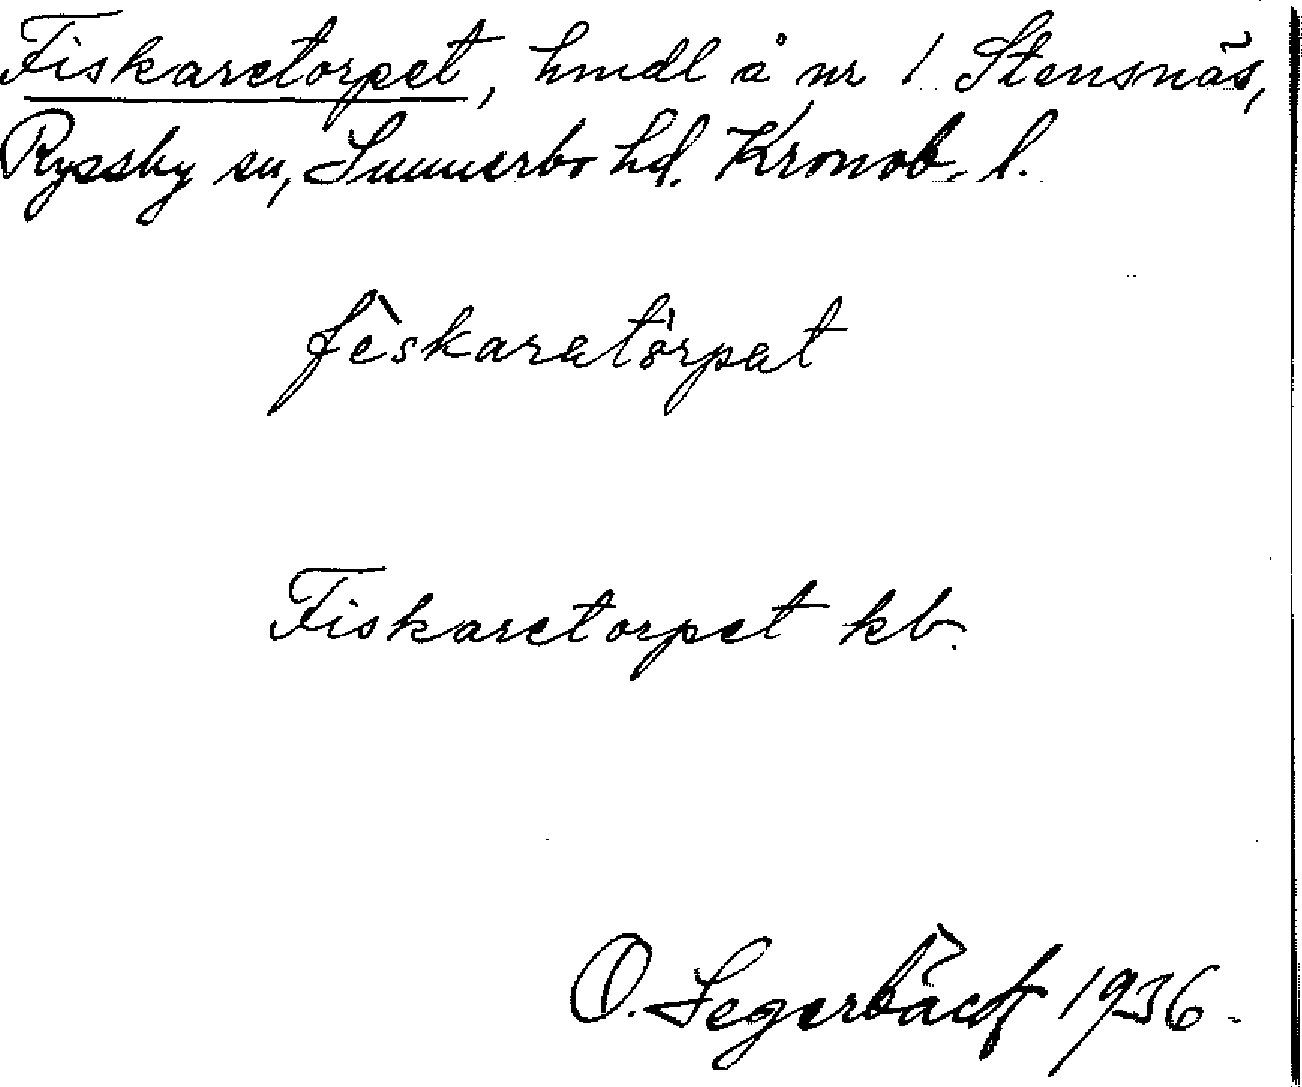 Fiskaretorpet, hmdl å nr 1 Stensnäs,
Ryssby sn, Sunnerbo hd. Kronob. l.
fèskaratórpat
Fiskaretorpet kb.
O. Segerbäck 1936.